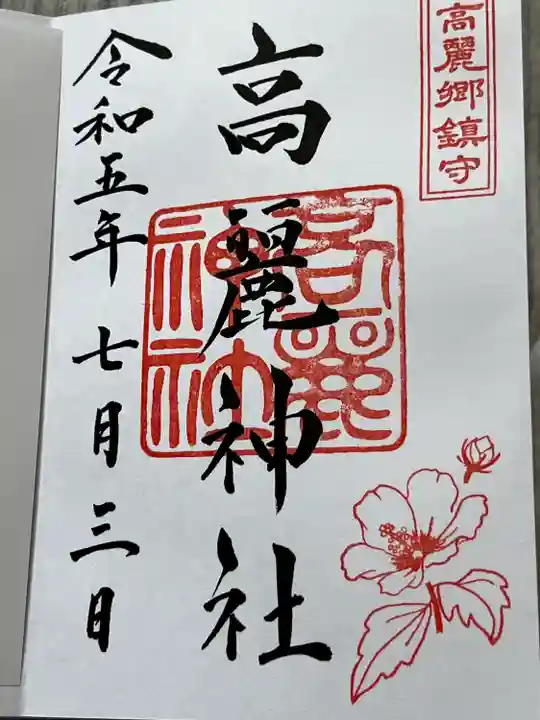 高麗郷鎮守
高麗神社
高麗神社
令和五年 七月三日